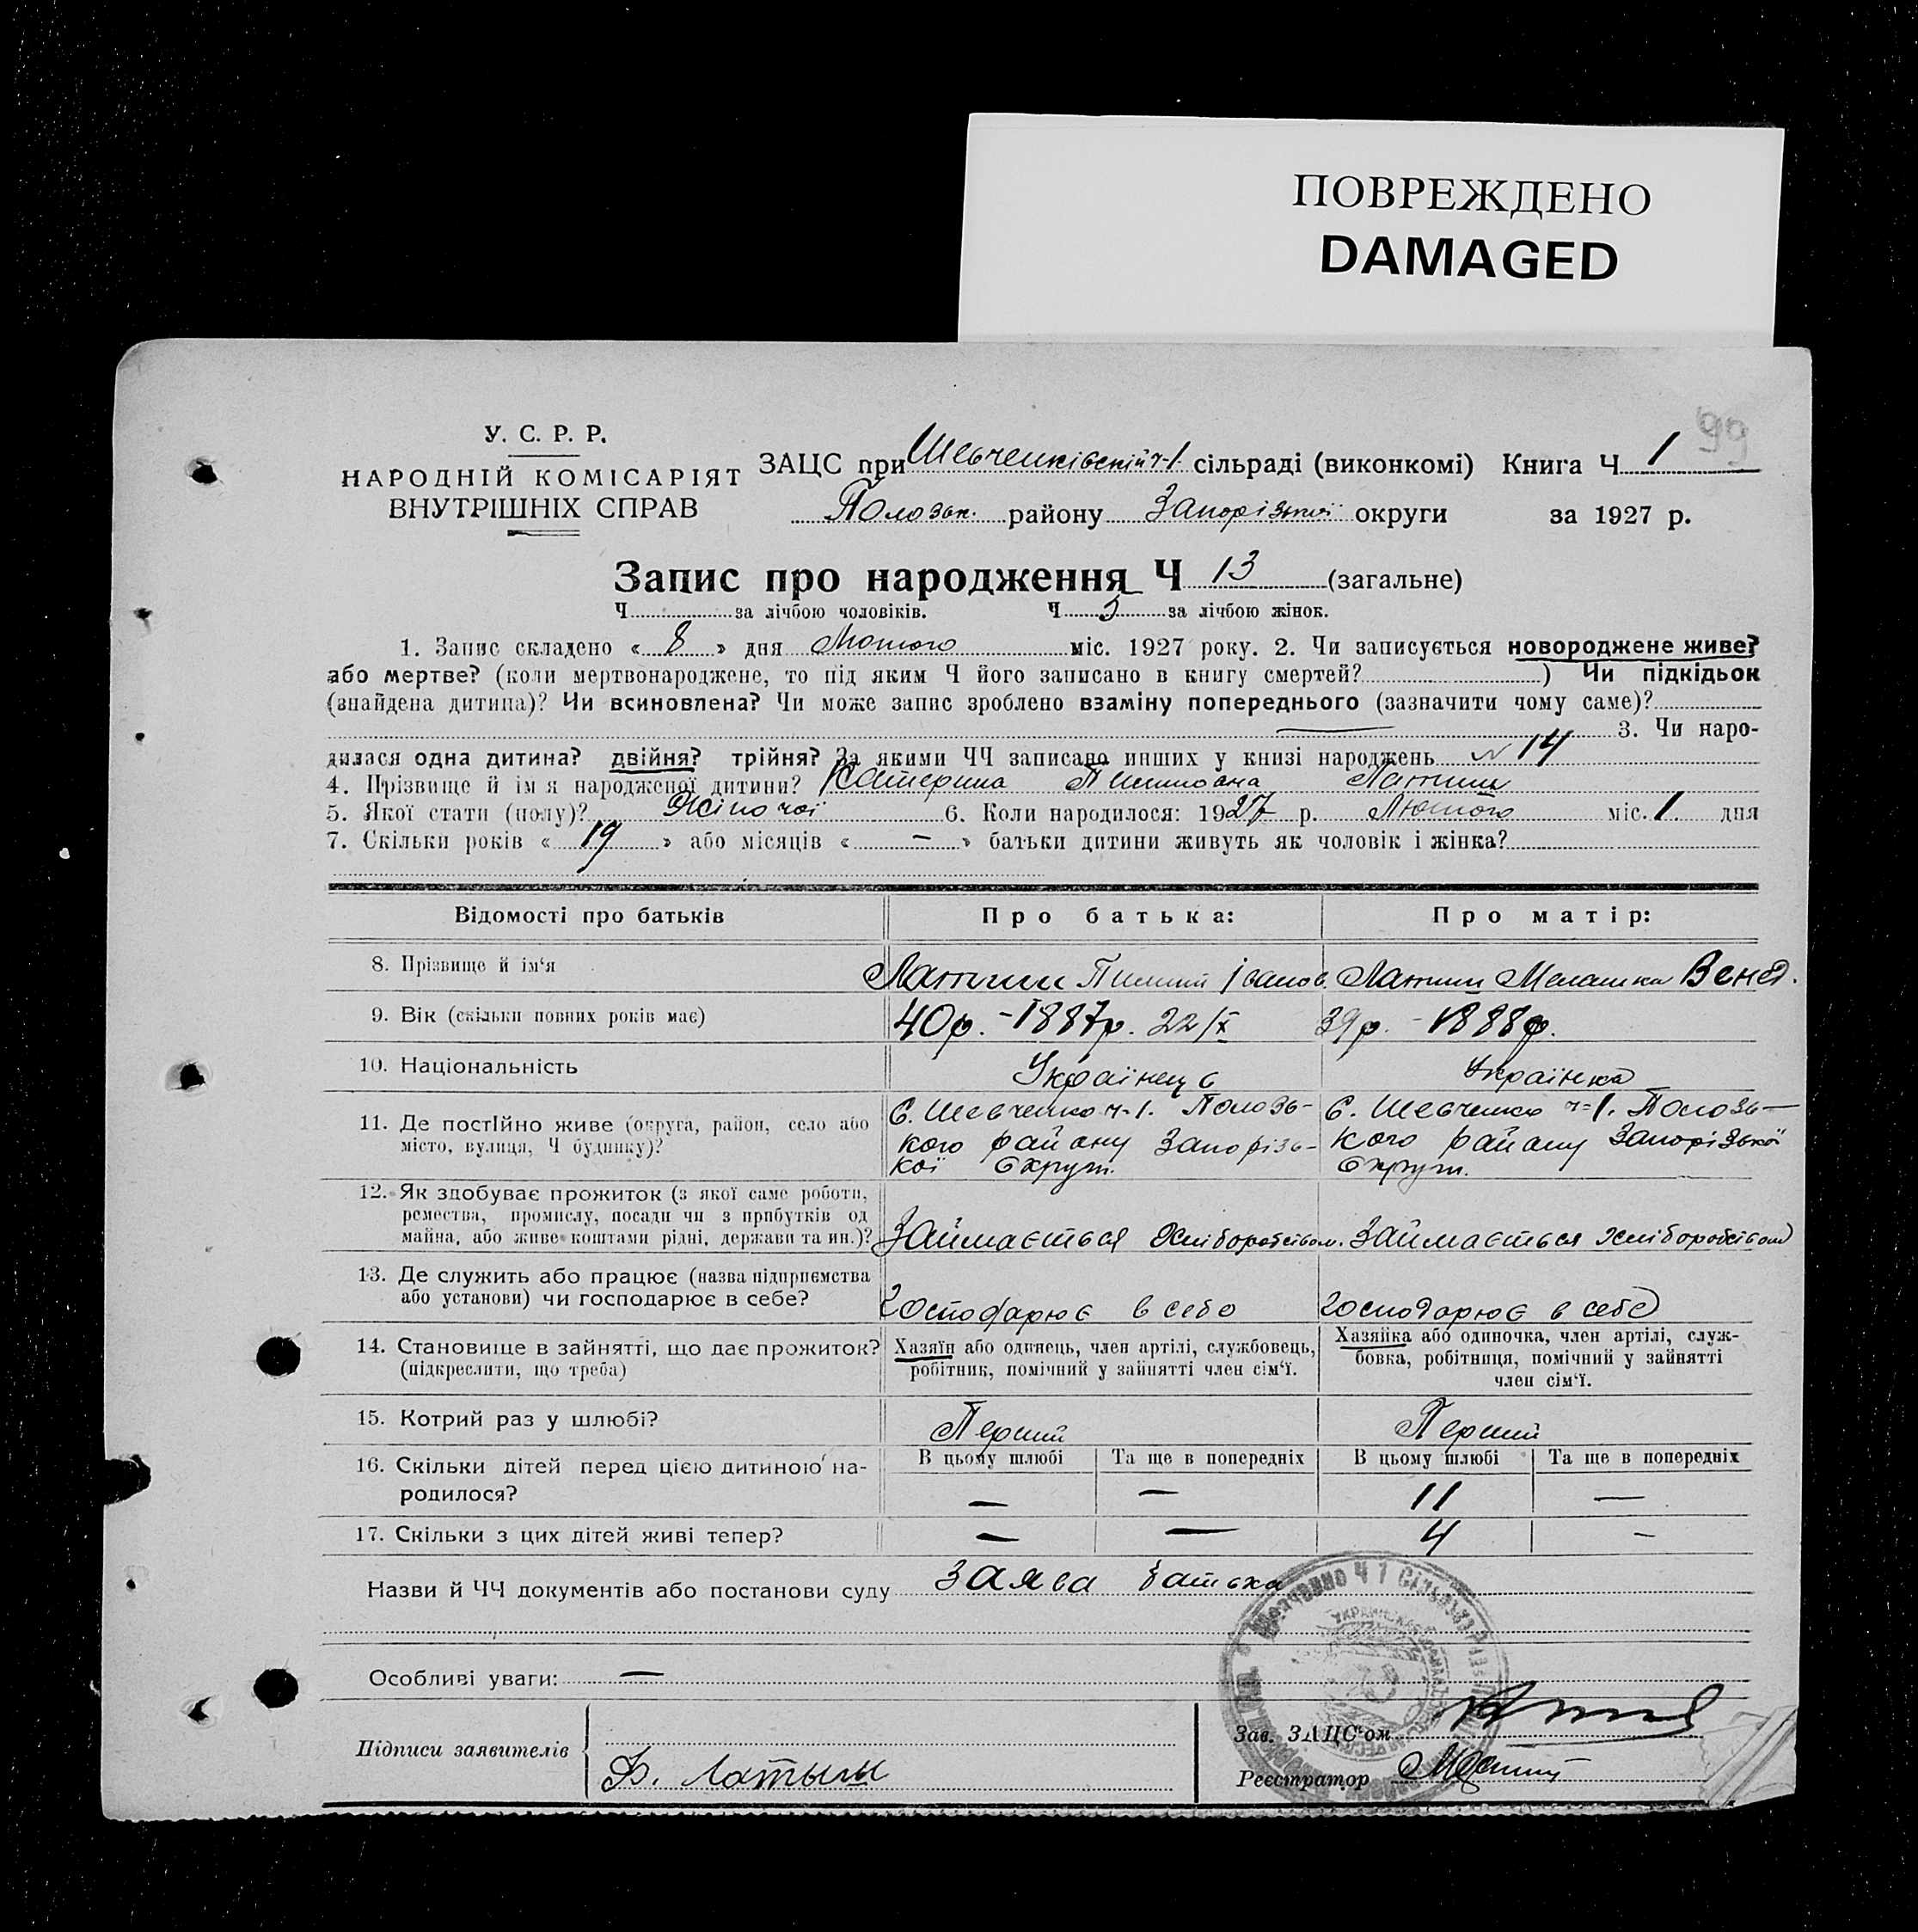 ПОВРЕЖДЕНО
DAMAGED
99
У. С. Р. Р.
НАРОДНІЙ КОМІСАРІЯТ
ВНУТРІШНІХ СПРАВ
ЗАЦС при Шевченківській ч-1. сільраді (виконкомі) Книга Ч 1
Полозьк. району Запорізької округи за 1927 р.
Запис про народження Ч 13 (загальне)
Ч за лічбою чоловіків. Ч 5 за лічбою жінок.
1. Запис складено « 8 » дня Лютого міс. 1927 року. 2. Чи записується новороджене живе?
або мертве? (коли мертвонароджене, то під яким Ч його записано в книгу смертей? ) Чи підкідьок
(знайдена дитина)? Чи всиновлена? Чи може запис зроблено взаміну попереднього (зазначити чому саме)?
— 3. Чи наро-
дилася одна дитина? двійня? трійня? За якими ЧЧ записано инших у книзі народжень N 14
4. Прізвище й ім я народженої дитини? Катерина Пиминовна Латиш
5. Якої стати (полу)? Жіночої 6. Коли народилося: 1927 р. Лютого міс. 1. дня
7. Скільки років « 19 » або місяців « — » батьки дитини живуть як чоловік і жінка?
Відомості про батьків Про батька: Про матір:
8. Прізвище й ім‘я Латиш Пимин Іванов. Латиш Мелашка Венед.
9. Вік (скільки повних років має) 40р. – 1887р. 22/X 39р. – 1888р.
10. Національність Українець Українка
11. Де постійно живе (округа, район, село або
місто, вулиця, Ч будинку)?
С. Шевченко ч-1. Полозь-
кого району Запорізь-
кої Округи.
С. Шевченко ч-1. Полозь-
кого району Запорізької
Округи.
12. Як здобуває прожиток (з якої саме роботи,
ремества, промислу, посади чи з прибутків од
майна, або живе коштами рідні, держави та ин.)?
Займається Хліборобством. Займається Хліборобством
13. Де служить або працює (назва підприємства
або установи) чи господарює в себе?
Господарює в себе Господарює в себе
14. Становище в зайнятті, що дає прожиток?
(підкреслити, що треба)
Хазяїн або одинець, член артілі, службовець,
робітник, помічний у зайнятті член сім‘ї.
Хазяйка або одиночка, член артілі, служ-
бовка, робітниця, помічний у зайнятті
член сім‘ї.
15. Котрий раз у шлюбі? Перший Перший
16. Скільки дітей перед цією дитиною на-
родилося?
В цьому шлюбі Та ще в попередніх В цьому шлюбі Та ще в попередніх
— — 11 —
17. Скільки з цих дітей живі тепер? — — 4 —
Назви й ЧЧ документів або постанови суду Заява батька
Особливі уваги: —
Підписи заявителів
Латыш
Зав. ЗАЦС‘ом
Реєстратор